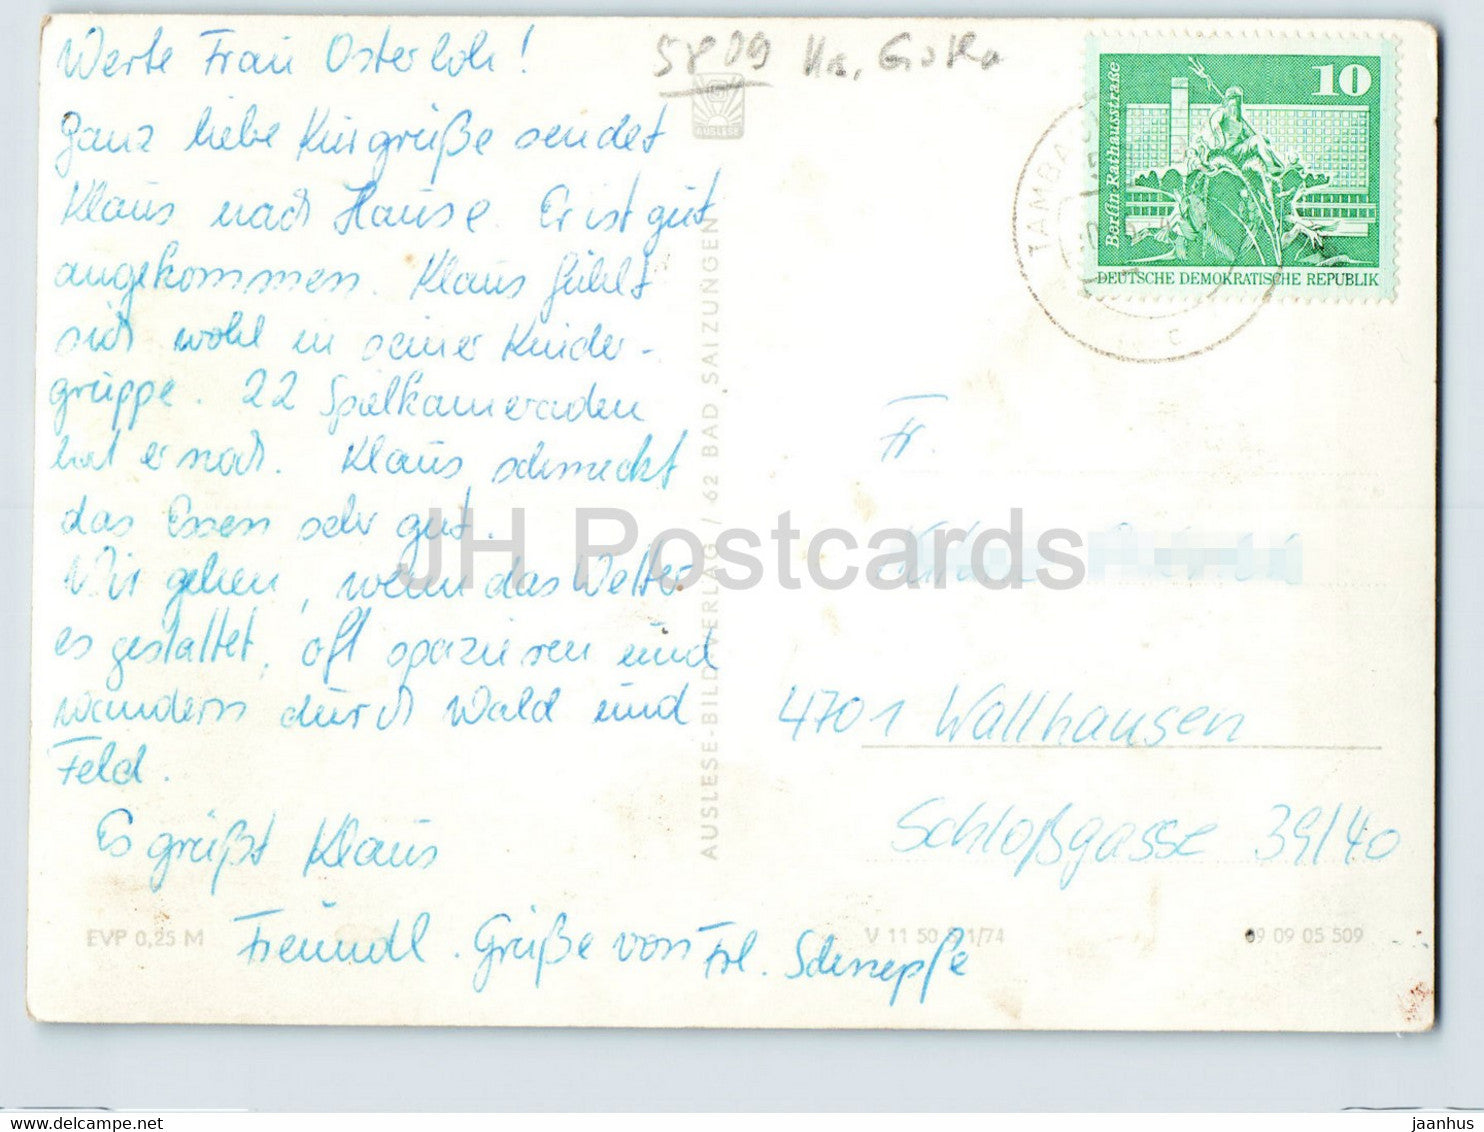 Werte Frau Osterloh!
Ganz liebe Kurgrüße sendet
Klaus nach Hause. Er ist gut
angekommen. Klaus fühlt
sich wohl in seiner Kinder-
gruppe. 22 Spielkameraden
hat er noch. Klaus schmeckt
das Essen sehr gut.
Wir gehen, wenn das Wetter
es gestattet, oft spazieren und
wandern durch Wald und
Feld.
Es grüßt Klaus
Freundl. Grüße von Frl. Schnepfe
EVP 0,25 M
AUSLESE-BILD-VERLAG / 62 BAD SALZUNGEN
AUSLESE
5809 Kr. Gotha
10
Berlin·Rathausstraße
DEUTSCHE DEMOKRATISCHE REPUBLIK
TAMBA
Fr.
4701 Wallhausen
Schloßgasse 39/40
V 11 50 1/74
09 09 05 509
JH Postcards
https://www.delcampe.net
jaanhus